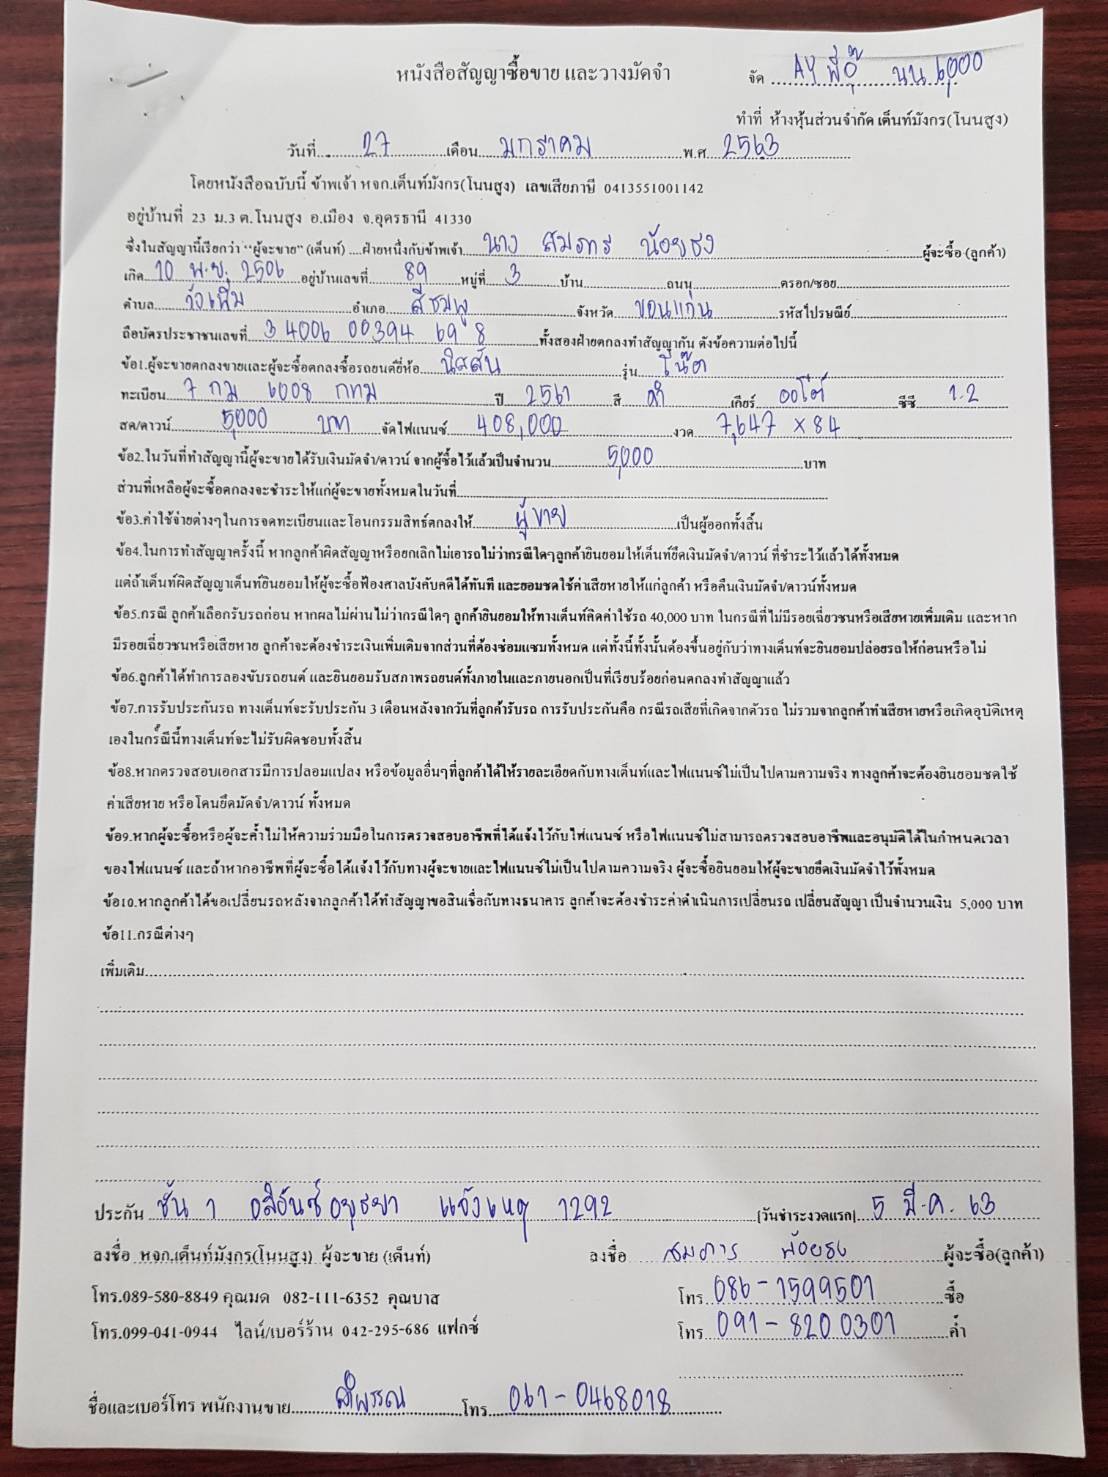 หนังสือสัญญาซื้อขาย และวางมัดจำ
จัด AY พี่อู๊ นน 6,000
ทำที่ ห้างหุ้นส่วนจำกัด เต็นท์มังกร(โนนสูง)
วันที่ 27 เดือน มกราคม พ.ศ 2563
โดยหนังสือฉบับนี้ ข้าพเจ้า หจก.เต็นท์มังกร(โนนสูง) เลขเสียภาษี 0413551001142
อยู่บ้านที่ 23 ม.3 ต.โนนสูง อ.เมือง จ.อุดรธานี 41330
ซึ่งในสัญญานี้เรียกว่า "ผู้จะขาย" (เต็นท์) ....ฝ่ายหนึ่งกับข้าพเจ้า นาง สมภาร น้อยธง ผู้จะซื้อ (ลูกค้า)
เกิด 10 พ.ย. 2506 อยู่บ้านเลขที่ 89 หมู่ที่ 3 บ้าน ถนน ตรอก/ซอย
ตำบล วังเพิ่ม อำเภอ สีชมพู จังหวัด ขอนแก่น รหัสไปรษณีย์
ถือบัตรประชาชนเลขที่ 3 4006 00394 69 8 ทั้งสองฝ่ายตกลงทำสัญญากัน ดังข้อความต่อไปนี้
ข้อ1.ผู้จะขายตกลงขายและผู้จะซื้อตกลงซื้อรถยนต์ยี่ห้อ นิสสัน รุ่น โน๊ต
ทะเบียน 7 กม 6008 กทม ปี 2561 สี ดำ เกียร์ ออโต้ ซีซี 1.2
สด/ดาวน์ 5,000 บาท จัดไฟแนนซ์ 408,000 งวด 7,647 x 84
ข้อ2.ในวันที่ทำสัญญานี้ผู้จะขายได้รับเงินมัดจำ/ดาวน์ จากผู้ซื้อไว้แล้วเป็นจำนวน 5,000 บาท
ส่วนที่เหลือผู้จะซื้อตกลงจะชำระให้แก่ผู้จะขายทั้งหมดในวันที่
ข้อ3.ค่าใช้จ่ายต่างๆในการจดทะเบียนและโอนกรรมสิทธ์ตกลงให้ ผู้ขาย เป็นผู้ออกทั้งสิ้น
ข้อ4.ในการทำสัญญาครั้งนี้ หากลูกค้าผิดสัญญาหรือยกเลิกไม่เอารถไม่ว่ากรณีใดๆลูกค้ายินยอมให้เต็นท์ยึดเงินมัดจำ/ดาวน์ ที่ชำระไว้แล้วได้ทั้งหมด
แต่ถ้าเต็นท์ผิดสัญญาเต็นท์ยินยอมให้ผู้จะซื้อฟ้องศาลบังคับคดีได้ทันที และยอมชดใช้ค่าเสียหายให้แก่ลูกค้า หรือคืนเงินมัดจำ/ดาวน์ทั้งหมด
ข้อ5.กรณี ลูกค้าเลือกรับรถก่อน หากผลไม่ผ่านไม่ว่ากรณีใดๆ ลูกค้ายินยอมให้ทางเต็นท์คิดค่าใช้รถ 40,000 บาท ในกรณีที่ไม่มีรอยเฉี่ยวชนหรือเสียหายเพิ่มเติม และหาก
มีรอยเฉี่ยวชนหรือเสียหาย ลูกค้าจะต้องชำระเงินเพิ่มเติมจากส่วนที่ต้องซ่อมแซมทั้งหมด แต่ทั้งนี้ทั้งนั้นต้องขึ้นอยู่กับว่าทางเต็นท์จะยินยอมปล่อยรถให้ก่อนหรือไม่
ข้อ6.ลูกค้าได้ทำการลองขับรถยนต์ และยินยอมรับสภาพรถยนต์ทั้งภายในและภายนอกเป็นที่เรียบร้อยก่อนตกลงทำสัญญาแล้ว
ข้อ7.การรับประกันรถ ทางเต็นท์จะรับประกัน 3 เดือนหลังจากวันที่ลูกค้ารับรถ การรับประกันคือ กรณีรถเสียที่เกิดจากตัวรถ ไม่รวมจากลูกค้าทำเสียหายหรือเกิดอุบัติเหตุ
เองในกรณีนี้ทางเต็นท์จะไม่รับผิดชอบทั้งสิ้น
ข้อ8.หากตรวจสอบเอกสารมีการปลอมแปลง หรือข้อมูลอื่นๆที่ลูกค้าได้ให้รายละเอียดกับทางเต็นท์และไฟแนนซ์ไม่เป็นไปตามความจริง ทางลูกค้าจะต้องยินยอมชดใช้
ค่าเสียหาย หรือโดนยึดมัดจำ/ดาวน์ ทั้งหมด
ข้อ9.หากผู้จะซื้อหรือผู้จะค้ำไม่ให้ความร่วมมือในการตรวจสอบอาชีพที่ได้แจ้งไว้กับไฟแนนซ์ หรือไฟแนนซ์ไม่สามารถตรวจสอบอาชีพและอนุมัติได้ในกำหนดเวลา
ของไฟแนนซ์ และถ้าหากอาชีพที่ผู้จะซื้อได้แจ้งไว้กับทางผู้จะขายและไฟแนนซ์ไม่เป็นไปตามความจริง ผู้จะซื้อยินยอมให้ผู้จะขายยึดเงินมัดจำไว้ทั้งหมด
ข้อ10.หากลูกค้าได้ขอเปลี่ยนรถหลังจากลูกค้าได้ทำสัญญาขอสินเชื่อกับทางธนาคาร ลูกค้าจะต้องชำระค่าดำเนินการเปลี่ยนรถ เปลี่ยนสัญญา เป็นจำนวนเงิน 5,000 บาท
ข้อ11.กรณีต่างๆ
เพิ่มเติม
ประกัน ชั้น 1 อลิอันซ์อยุธยา แจ้งเหตุ 1292 [วันชำระงวดแรก] 5 มี.ค. 63
ลงชื่อ หจก.เต็นท์มังกร(โนนสูง) ผู้จะขาย (เต็นท์) ลงชื่อ สมภาร น้อยธง ผู้จะซื้อ(ลูกค้า)
โทร.089-580-8849 คุณมด 082-111-6352 คุณบาส โทร 086-1599501 ซื้อ
โทร.099-041-0944 ไลน์/เบอร์ร้าน 042-295-686 แฟกซ์ โทร 091-8200301 ค้ำ
ชื่อและเบอร์โทร พนักงานขาย โทร 061-0468018